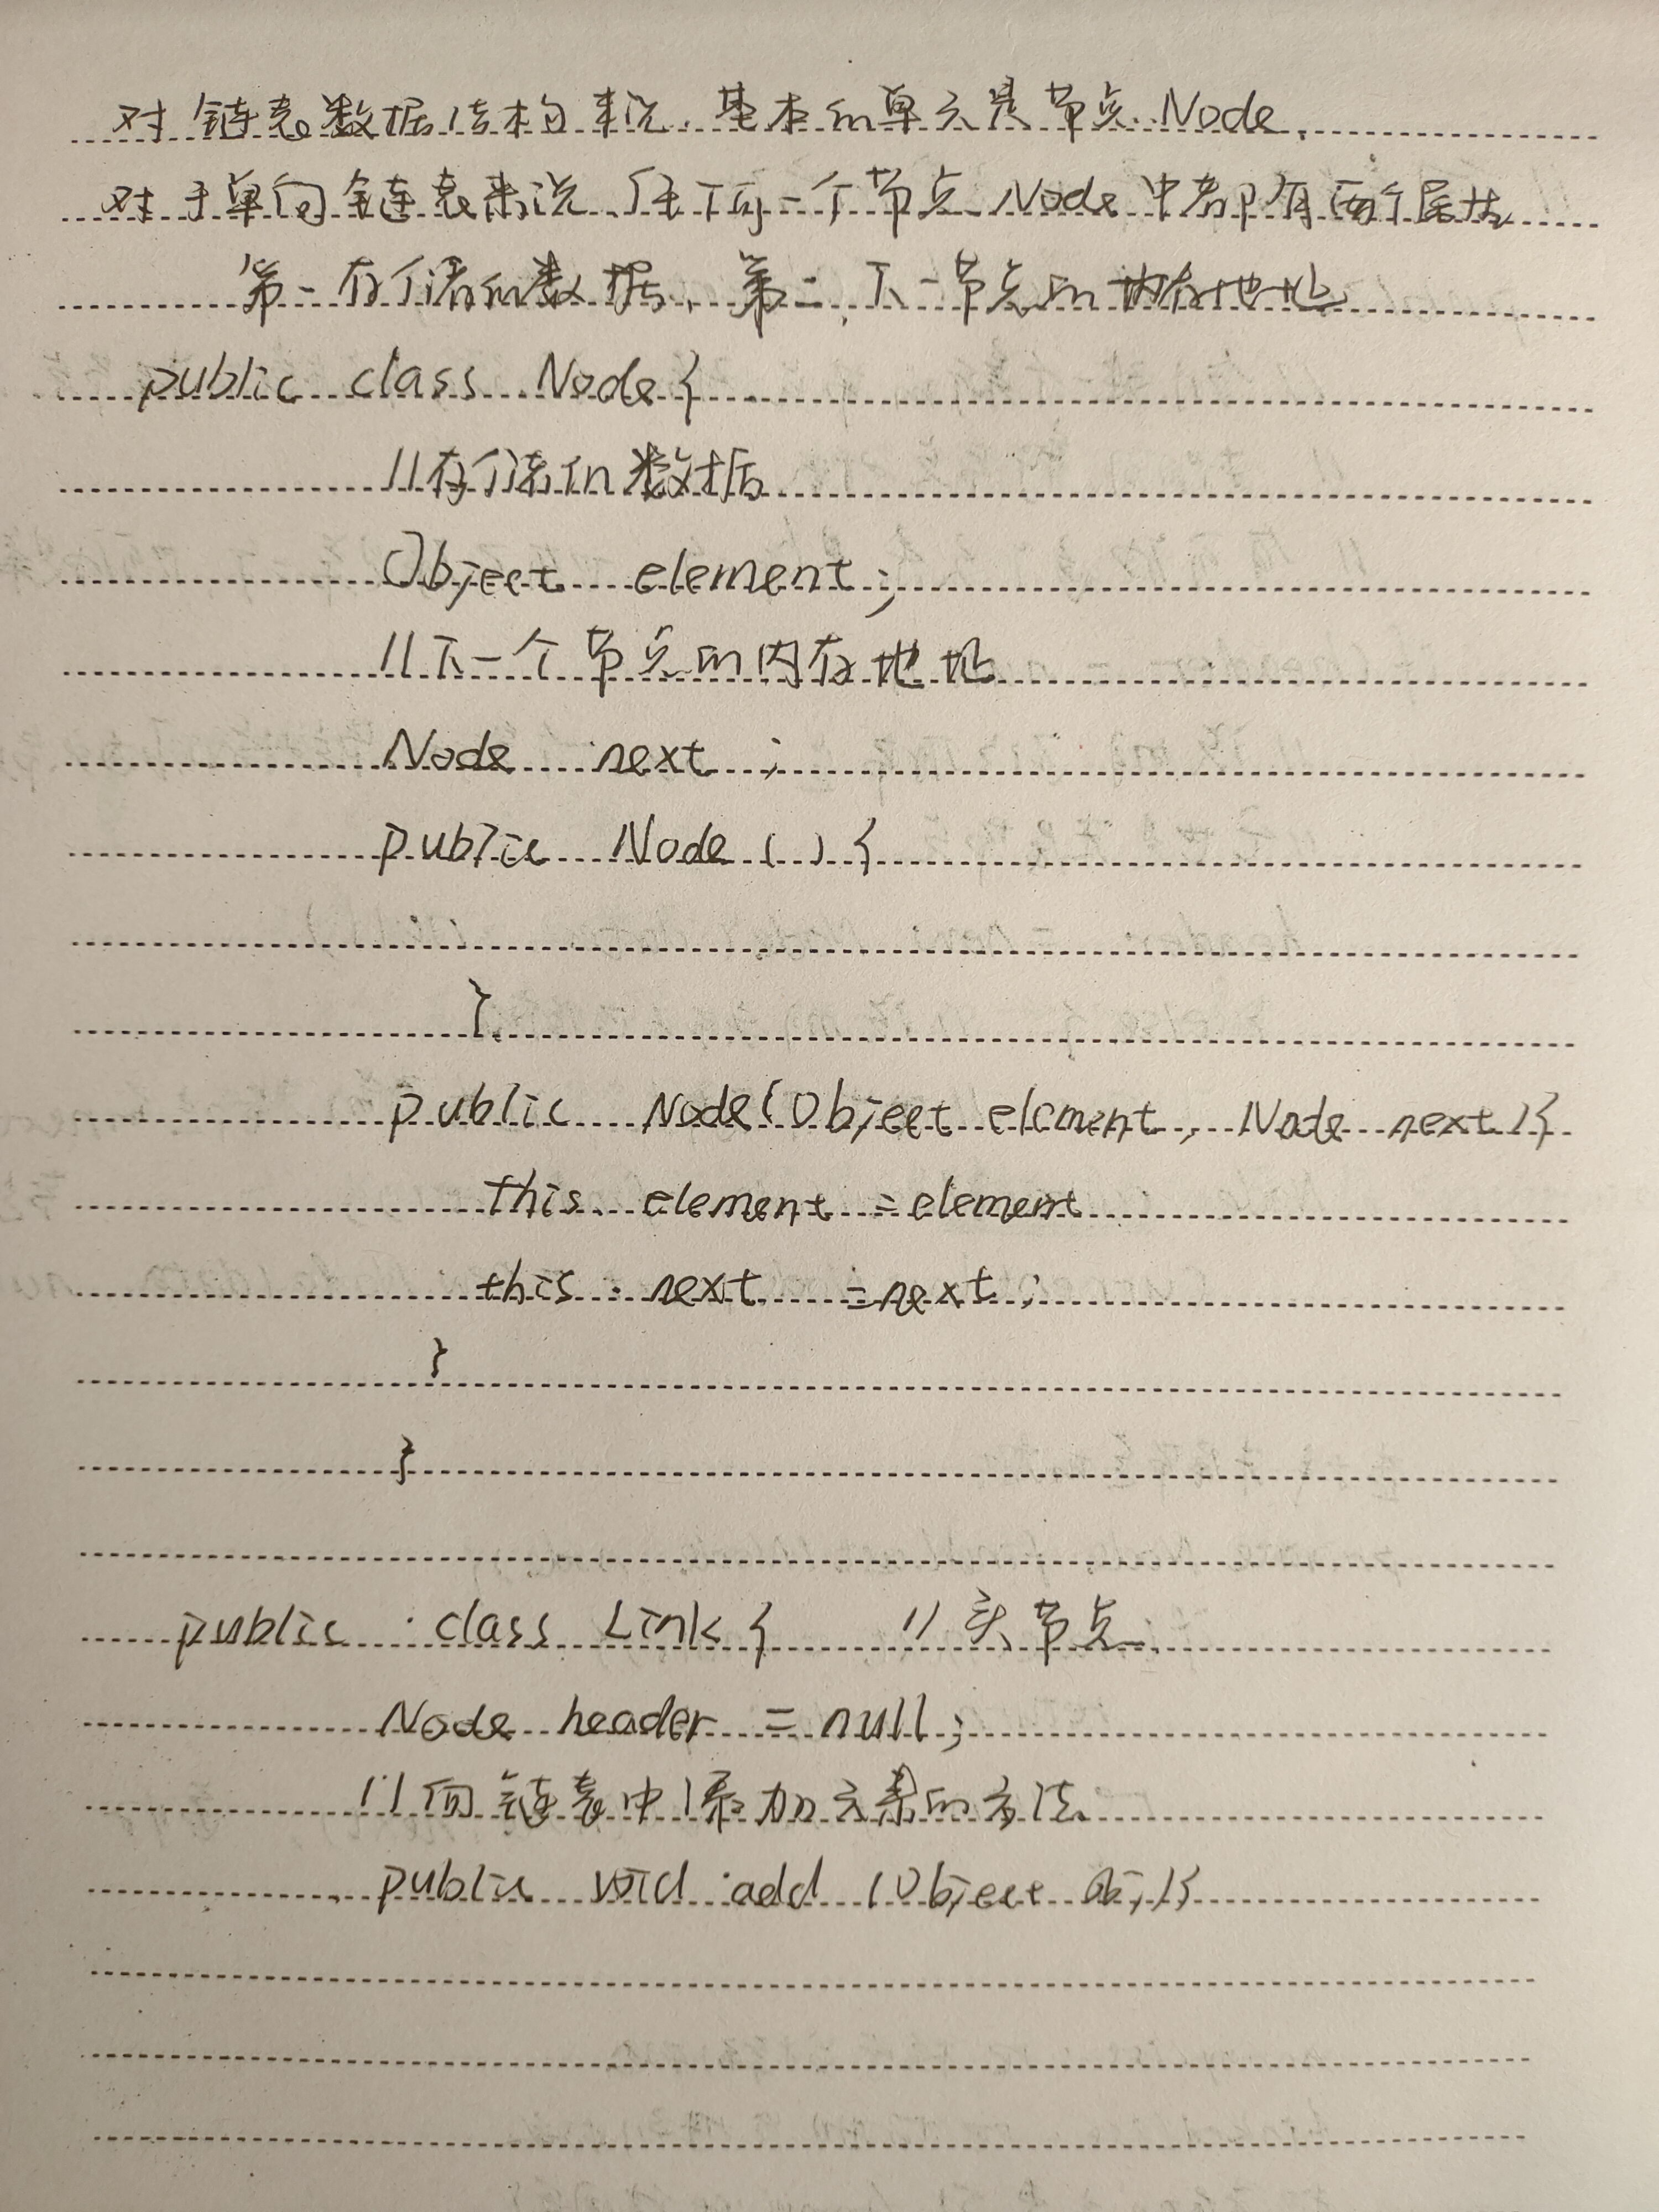 对链表数据结构来说,基本的单元是节点Node.
对于单向链表来说 任何一个节点Node中都有两个属性
第一存储的数据,第二,下一节点的内存地址
public class Node{
//存储的数据
Object element;
//下一个节点的内存地址
Node next;
public Node(){
}
public Node(Object element, Node next){
this. element =element
this. next =next;
}
}
public class Link{ //头节点
Node header = null;
//向链表中添加元素的方法
public void add (Object obj){